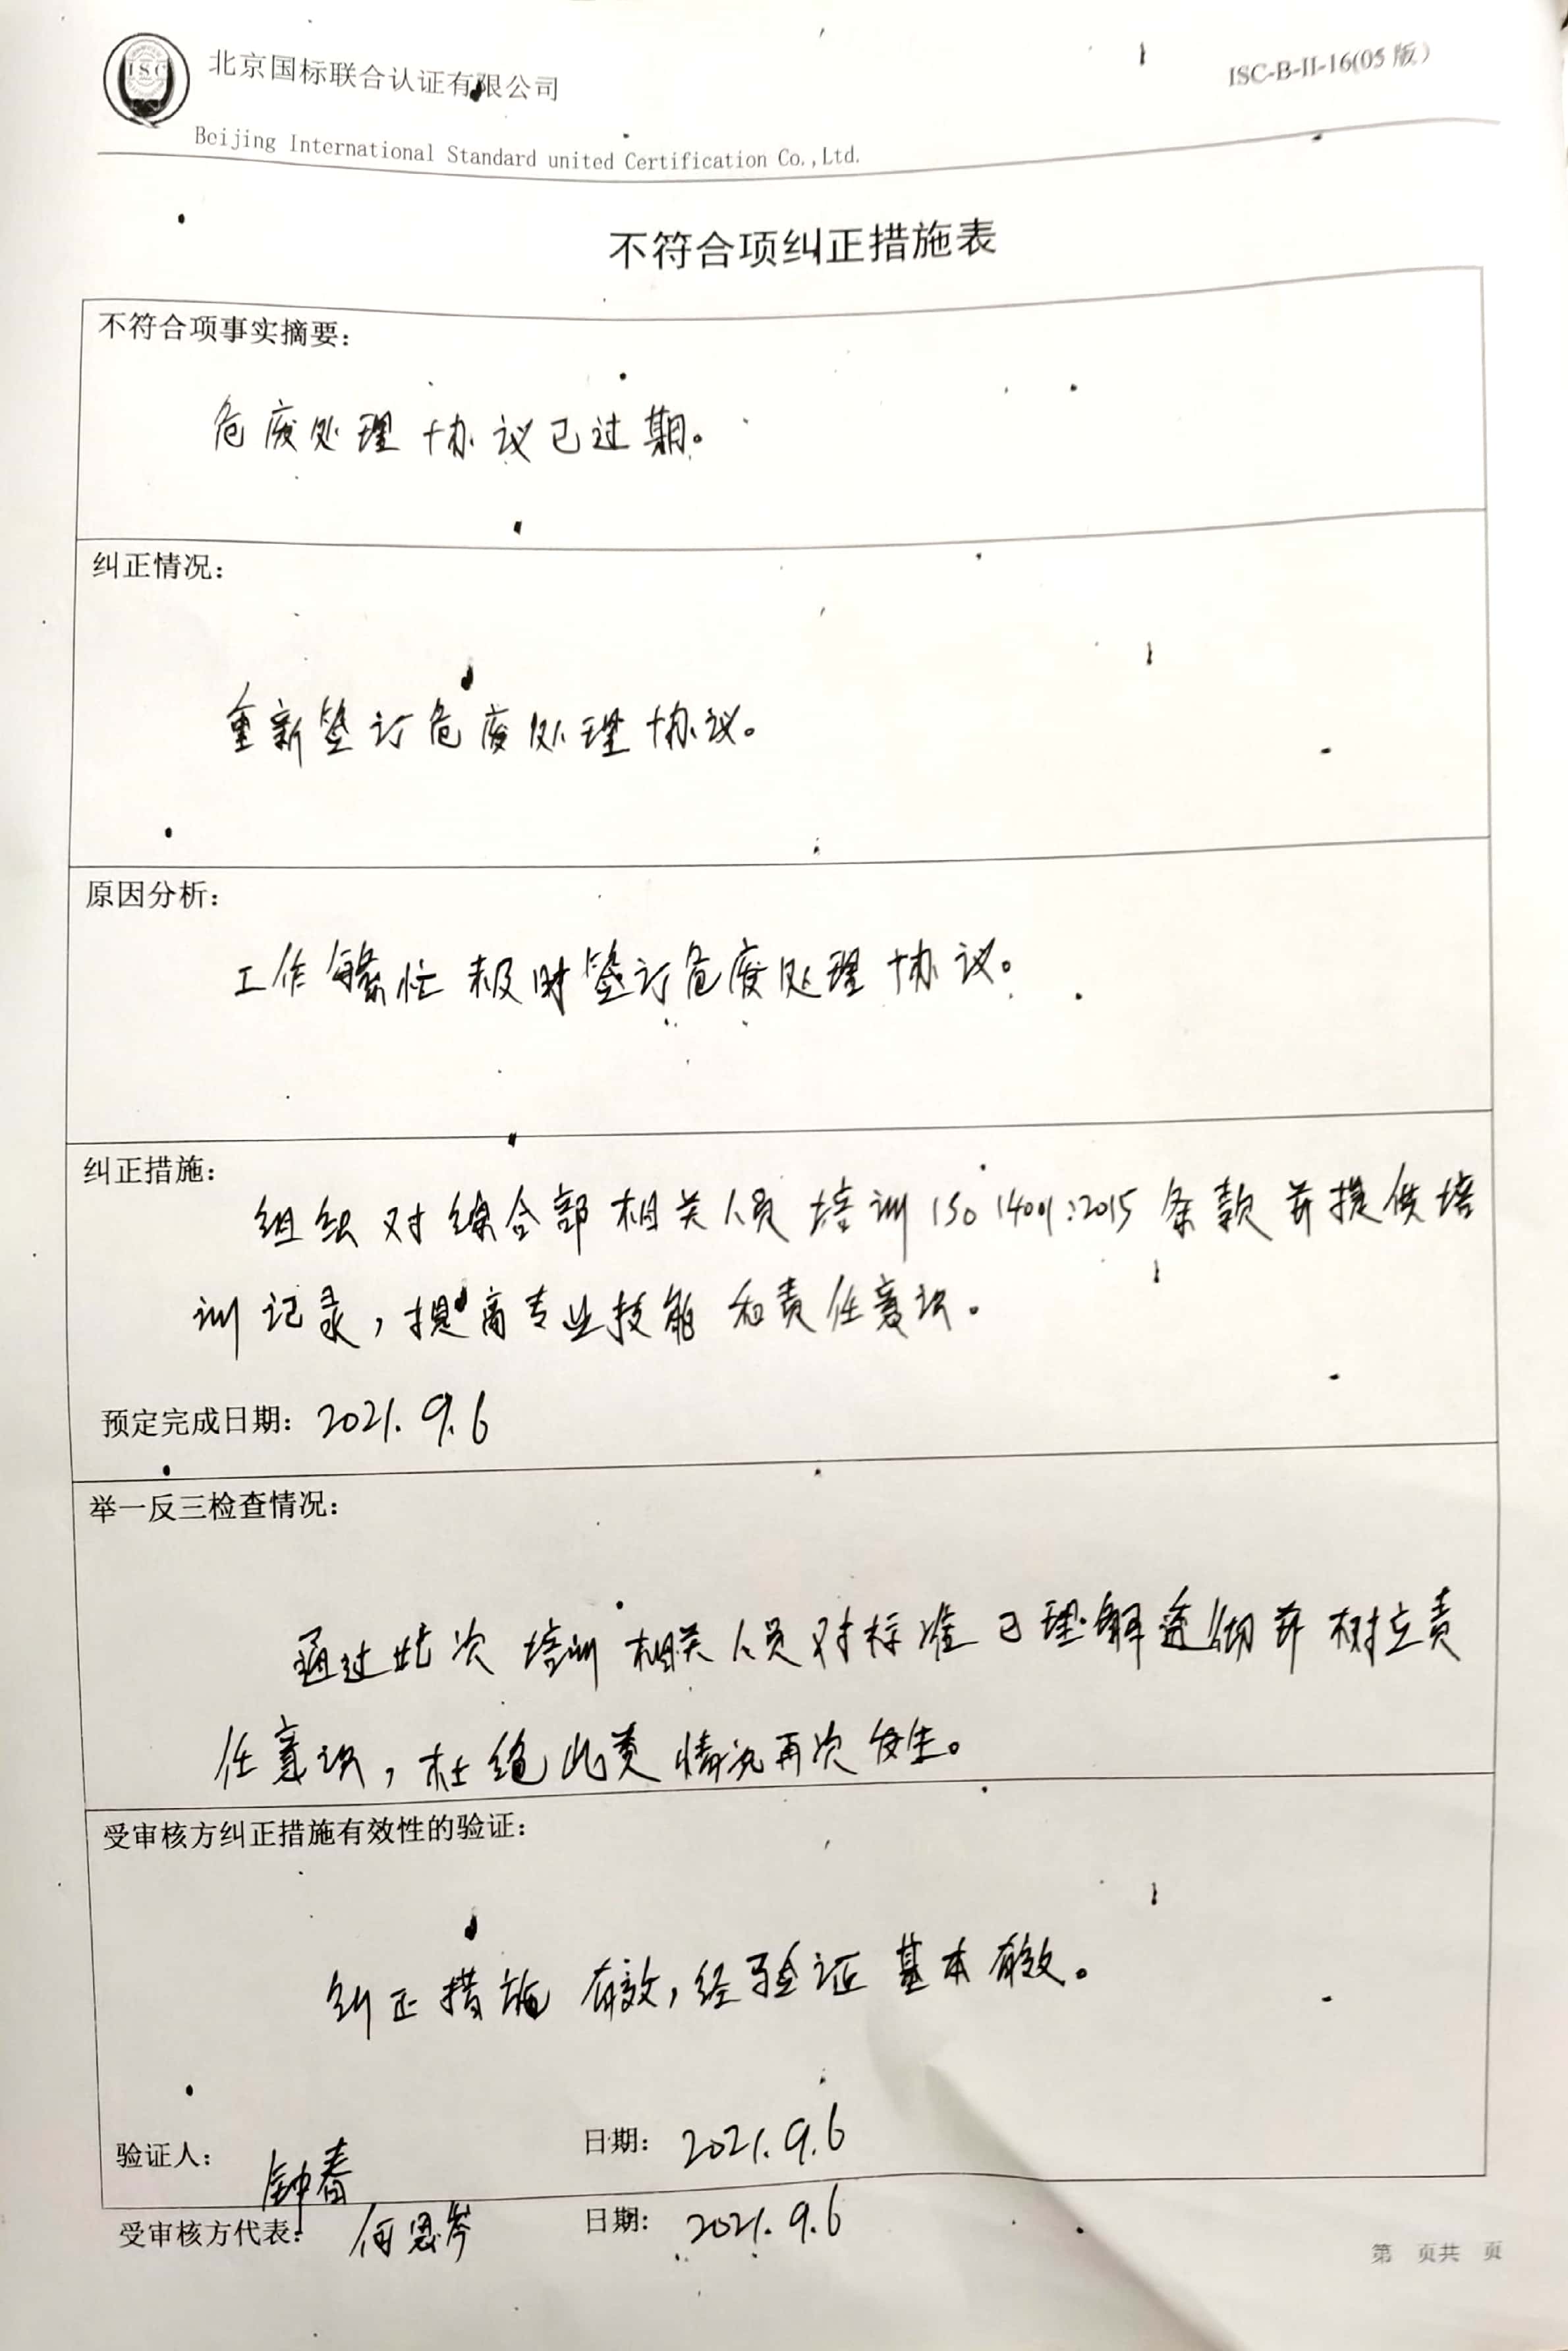 ISC
北京国标联合认证有限公司
ISC-B-II-16(05版)
Beijing International Standard united Certification Co.,Ltd.
不符合项纠正措施表
不符合项事实摘要：
危废处理协议已过期。
纠正情况：
重新签订危废处理协议。
原因分析：
工作繁忙未及时签订危废处理协议。
纠正措施：
组织对综合部相关人员培训ISO 14001:2015条款并提供培
训记录，提高专业技能和责任意识。
预定完成日期：2021.9.6
举一反三检查情况：
通过此次培训相关人员对标准已理解透彻并树立责
任意识，杜绝此类情况再次发生。
受审核方纠正措施有效性的验证：
纠正措施有效，经验证基本有效。
验证人：钟春 日期：2021.9.6
受审核方代表：何思岑 日期：2021.9.6
第 页共 页